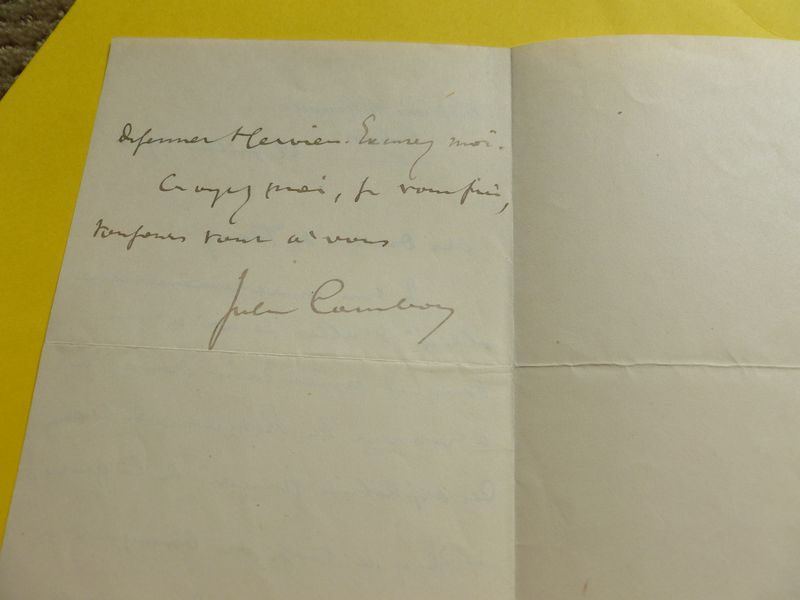 déjeuner Hervieu. Excusez moi.
Croyez moi, je vous prie,
toujours tout à vous
Jules Cambon